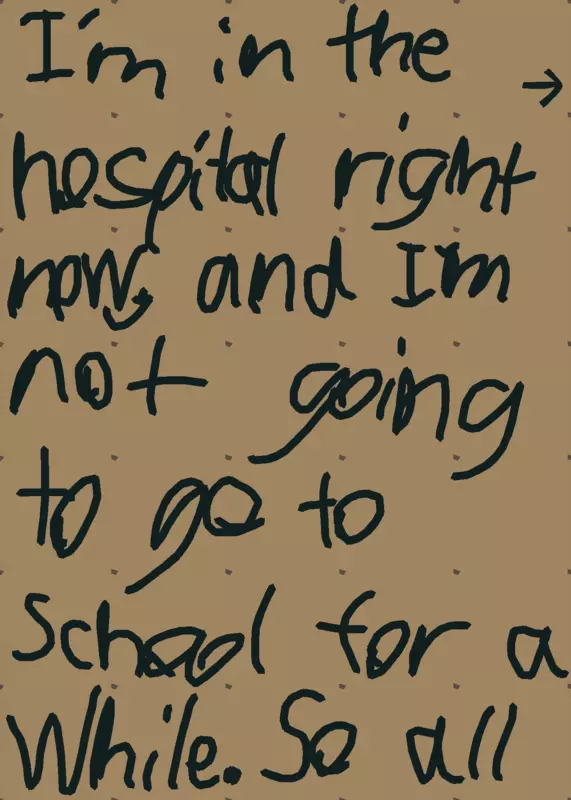 I'm in the →
hospital right
now, and I'm
not going
to go to
School for a
While. So all